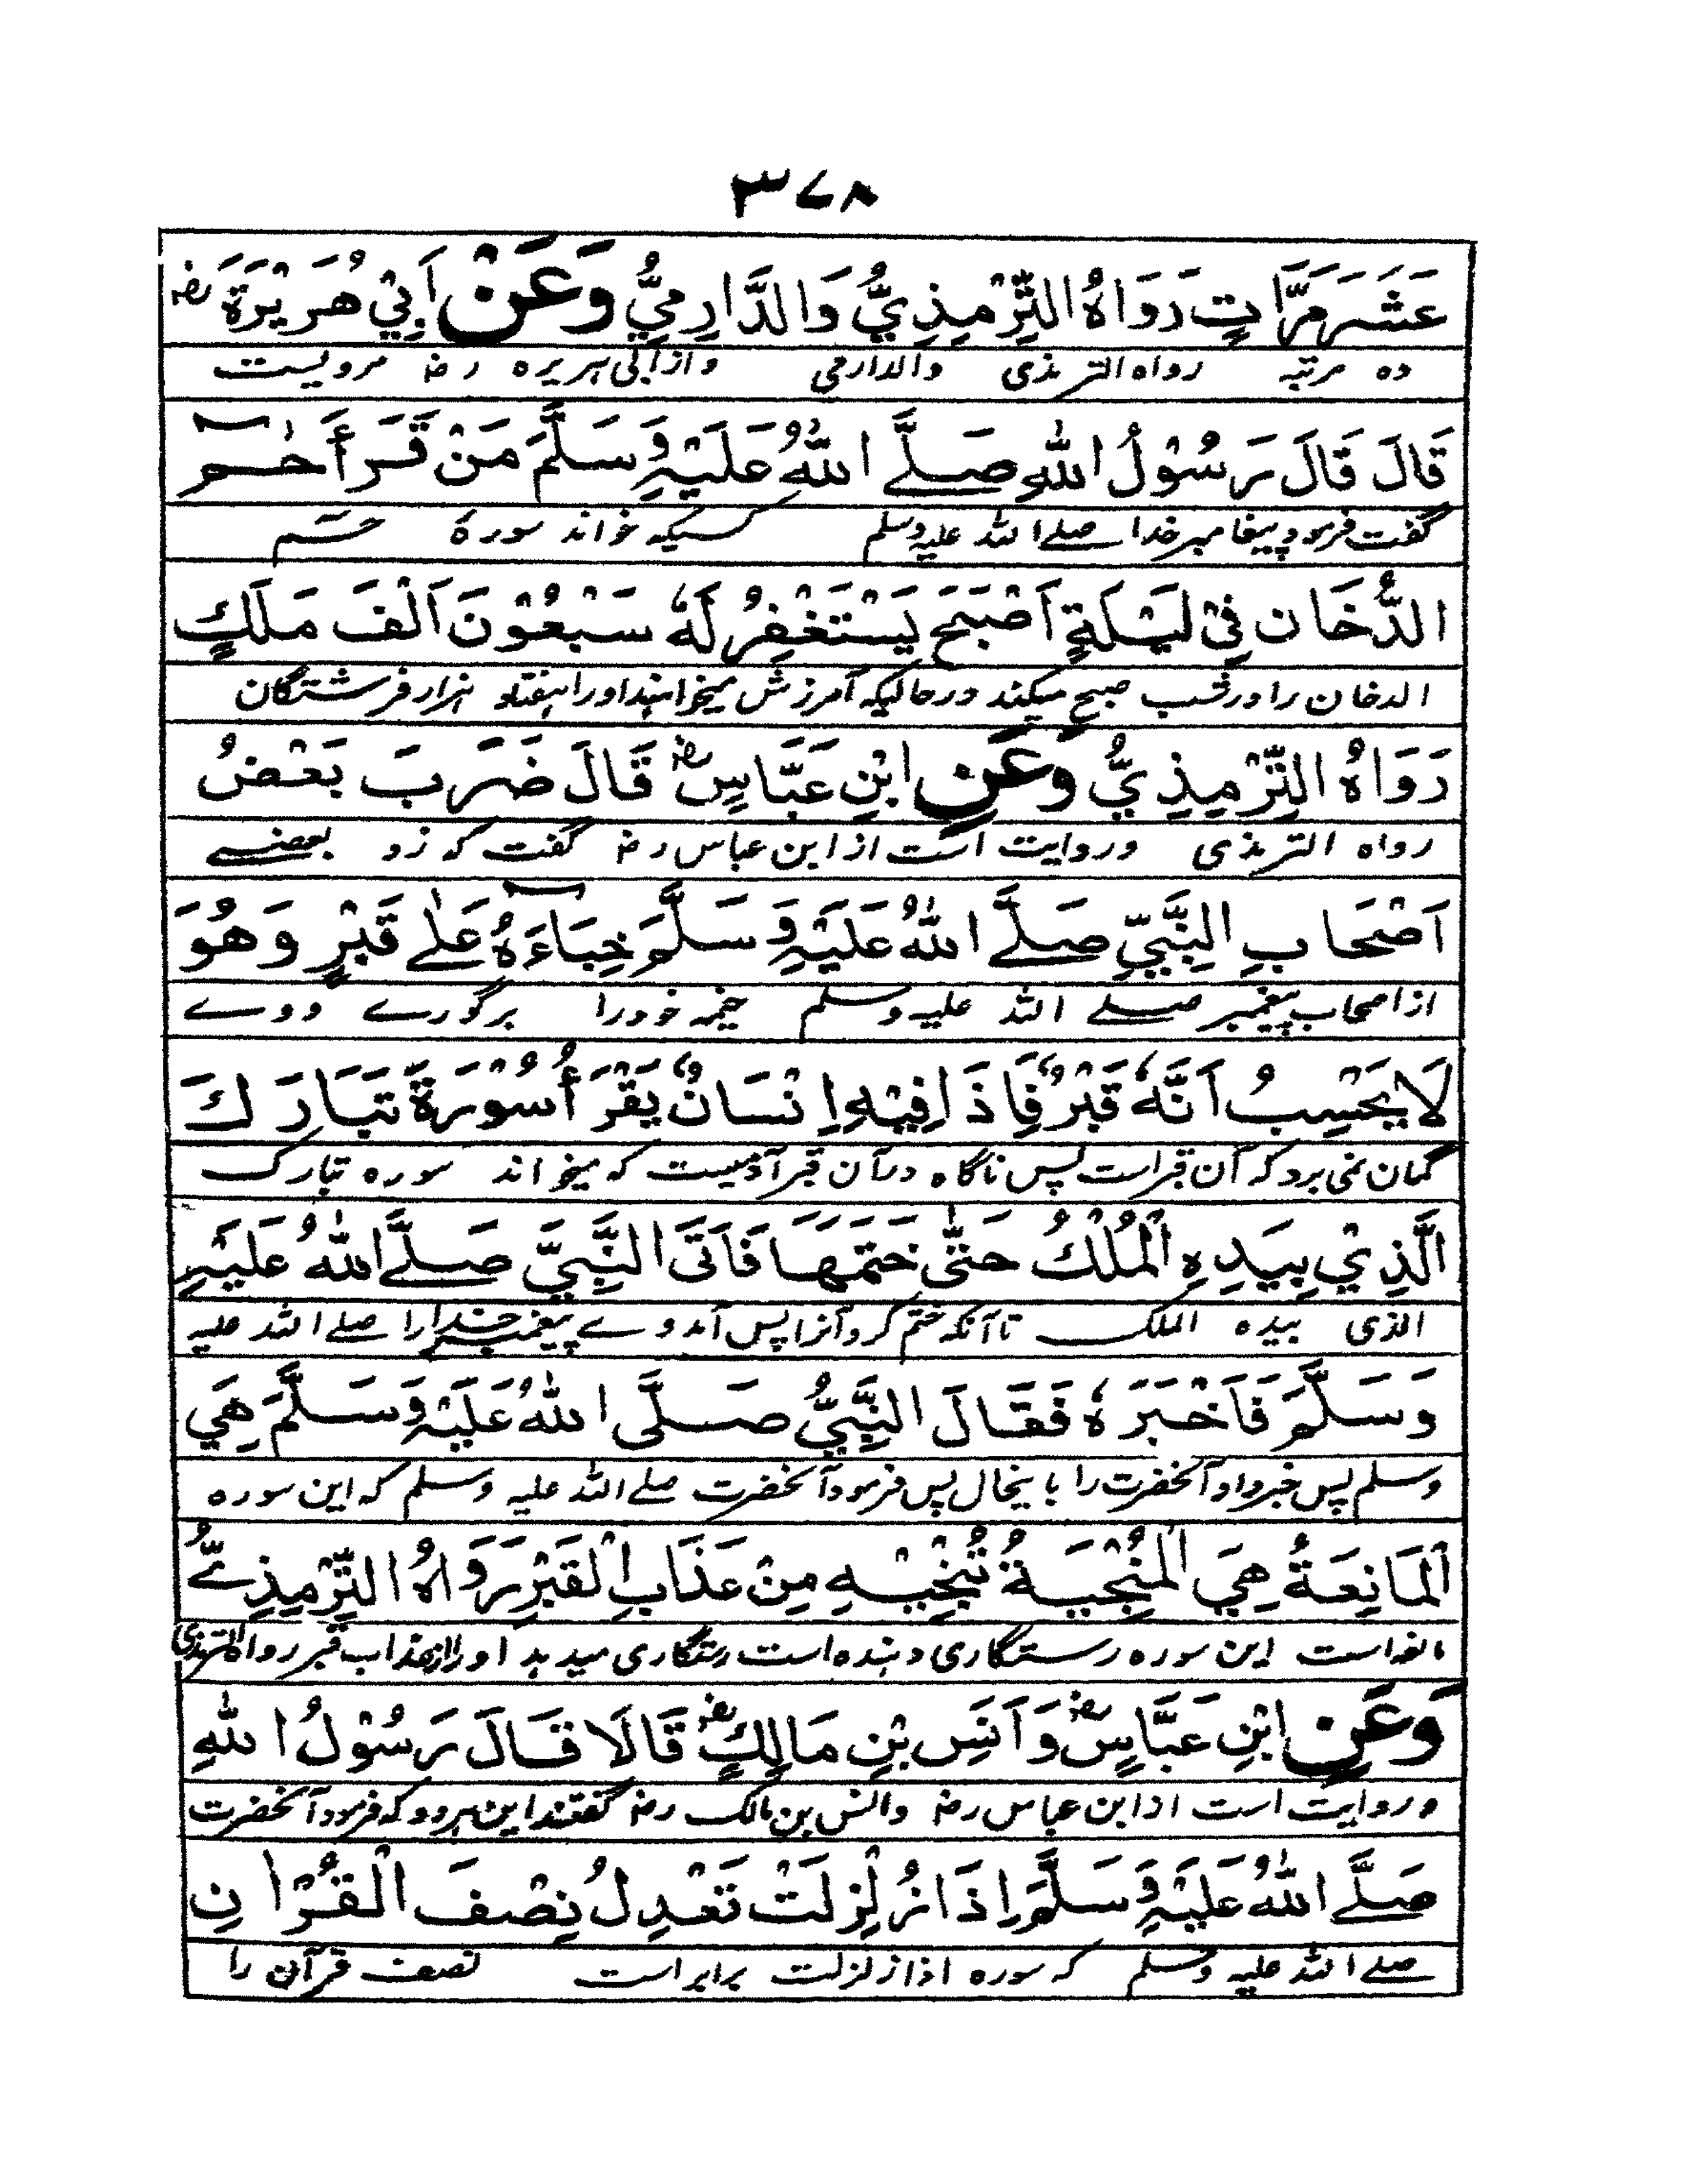 ۳۷۸
عَشَرَ مَرَّاتٍ رَوَاهُ التِّرْمِذِيُّ وَالدَّارِمِيُّ وَعَنْ اَبِيْ هُرَيْرَةَ رض
ده مرتبه رواه الترمذی والدارمی و از ابی هریره رض مرویست
قَالَ قَالَ رَسُوْلُ اللّٰهِ صَلَّے اللّٰهُ عَلَيْهِ وَسَلَّمَ مَنْ قَرَأَ حٰم
گفت فرمود پیغامبر خدا صلے الله علیه وسلم کسیکه خواند سورۀ حٰم
الدُّخَان فِيْ لَيْلَةٍ اَصْبَحَ يَسْتَغْفِرُ لَهٗ سَبْعُوْنَ اَلْفَ مَلَكٍ
الدخان را در شب صبح میکند در حالیکه آمرزش میخواهند او را هفتاد هزار فرشتگان
رَوَاهُ التِّرْمِذِيُّ وَعَنِ ابْنِ عَبَّاسٍ رض قَالَ ضَرَبَ بَعْضُ
رواه الترمذی و روایت است از ابن عباس رض گفت که زد بعضے
اَصْحَابِ النَّبِيِّ صَلَّے اللّٰهُ عَلَيْهِ وَسَلَّمَ خِبَاءَهُ عَلٰے قَبْرٍ وَهُوَ
از اصحاب پیغمبر صلے الله علیه وسلم خیمه خود را بر گورے و وے
لَا يَحْسِبُ اَنَّهٗ قَبْرٌ فَاِذَا فِيْهِ اِنْسَانٌ يَقْرَأُ سُوْرَةَ تَبَارَكَ
گمان نمی برد که آن قبر است پس ناگاه در آن قبر آدمیست که میخواند سوره تبارک
الَّذِيْ بِيَدِهِ الْمُلْكُ حَتّٰى خَتَمَهَا فَاَتَى النَّبِيَّ صَلَّے اللّٰهُ عَلَيْهِ
الذی بیده الملک تا آنکه ختم کرد آنرا پس آمد وے پیغمبر خدا را صلے الله علیه
وَسَلَّمَ فَاَخْبَرَهٗ فَقَالَ النَّبِيُّ صَلَّى اللّٰهُ عَلَيْهِ وَسَلَّمَ هِيَ
وسلم پس خبر داد آنحضرت را باینحال پس فرمود آنحضرت صلے الله علیه وسلم که این سوره
اَلْمَانِعَةُ هِيَ الْمُنْجِيَةُ تُنْجِيْهِ مِنْ عَذَابِ الْقَبْرِ رَوَاهُ التِّرْمِذِيُّ
مانعه است این سوره رستگاری دهنده است رستگاری میدهد او را از عذاب قبر رواه الترمذی
وَعَنِ ابْنِ عَبَّاسٍ رض وَاَنَسِ بْنِ مَالِكٍ رض قَالَا قَالَ رَسُوْلُ اللّٰهِ
و روایت است از ابن عباس رض وانس بن مالک رض گفتند این هر دو که فرمود آنحضرت
صَلَّے اللّٰهُ عَلَيْهِ وَسَلَّمَ اِذَا زُلْزِلَتْ تَعْدِلُ نِصْفَ الْقُرْاٰنِ
صلے الله علیه وسلم که سوره اذا زلزلت برابر است نصف قرآن را